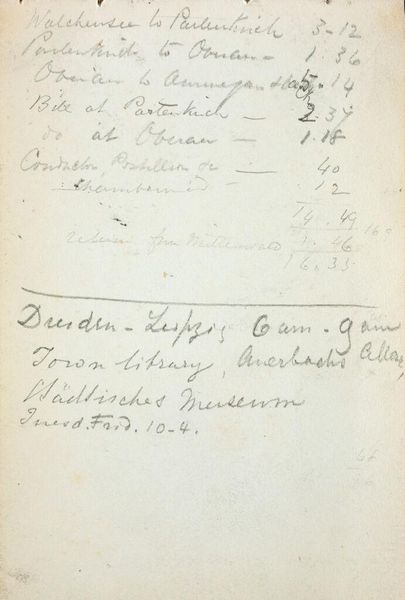 Walchensee to Partenkirch 3-12
Partenkirch to Oberau - 1.36
Oberau to Ammergau & back 5.14
Bite at Partenkirch - 2.37
do at Oberau - 1.18
Conductor, Postillion &c - 40
Chambermaid 12
14.49
return from Mittenwald 1.46
16.35
Dresden - Leipzig 6am - 9am
Town library, Auerbachs Cellar,
Städtisches Museum
Tuesd. Frid. 10-4.